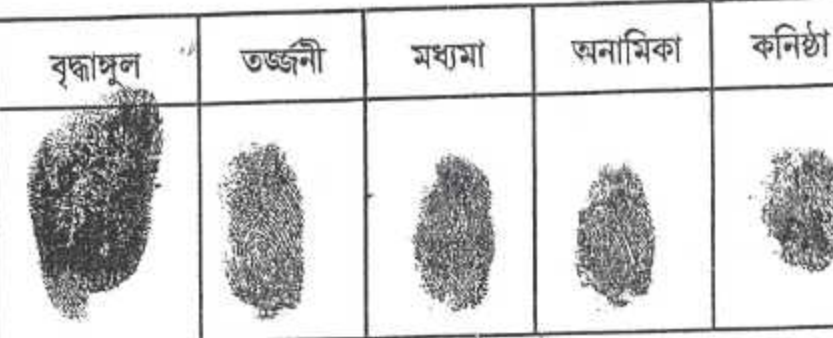 বৃদ্ধাঙ্গুল তর্জ্জনী মধ্যমা অনামিকা কনিষ্ঠা